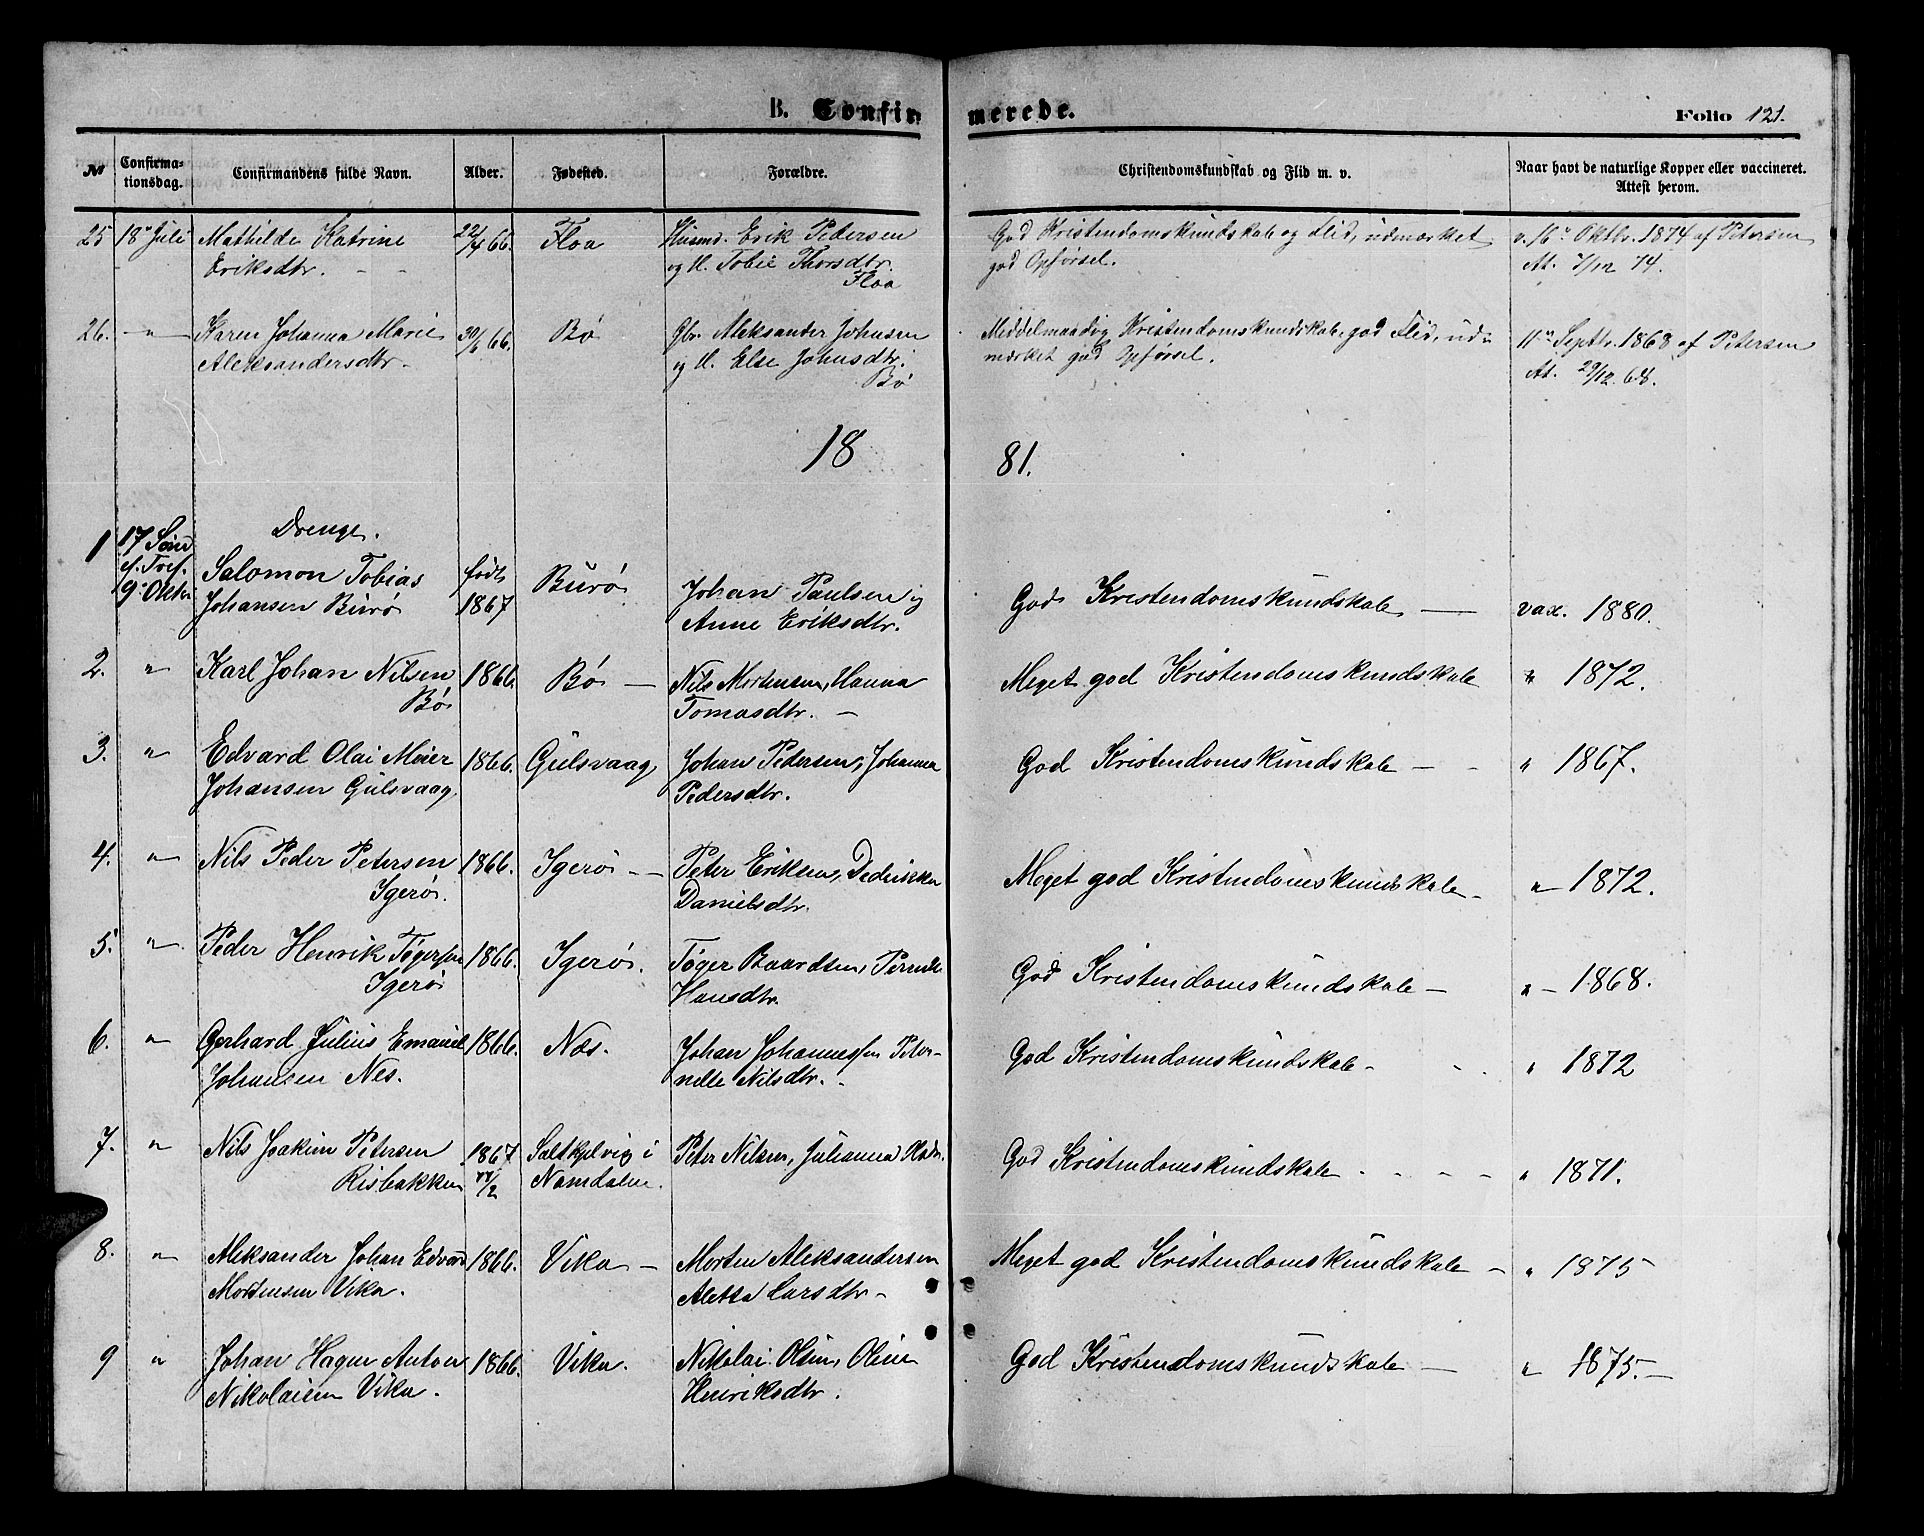 B. Confirmerede.
Folio 121.
№ Confirmationsdag. Confirmandens fulde Navn. Alder. Fødested. Forældre. Christendomskundskab og Flid m. v. Naar havt de naturlige Kopper eller vaccineret. Attest herom.
25 18de Juli Mathilde Katrine 22/4 66. Floa Husmd. Erik Pedersen God Kristendomskundskab og Flid, udmærket v. 16de Oktbr. 1874 af Petersen
Eriksdtr. og H. Tobie Thorsdtr. god Opførsel. At. 7/12 74.
Floa
26. " Karen Johanna Marie 30/6 66. Bø Gbr. Aleksander Johnsen Middelmaadig Kristendomskundskab, god Flid, ud- 11te Septbr. 1868 af Petersen
Aleksandersdtr. og H. Else Johnsdtr. mærket god Opførsel. At. 29/12. 68.
Bø
1881.
Drenge.
1 17 Sønd
e. Tref. Salomon Tobias født Burø Johan Paulsen og God Kristendomskundskab vax. 1880.
9de Oktbr Johansen Burø 1867 Anne Eriksdtr.
2. " Karl Johan Nilsen 1866. Bø Nils Mortensen, Hanna Meget god Kristendomskundskab " 1872.
Bø Tomasdtr.
3. " Edvard Olai Meier 1866. Gulsvaag Johan Pedersen, Johanna God Kristendomskundskab " 1867.
Johansen Gulsvaag. Pedersdtr.
4. " Nils Peder Petersen 1866. Igerø Peter Eriksen, Dedrikka Meget god Kristendomskundskab " 1872.
Igerø. Danielsdtr.
5. " Peder Henrik Tøgersen 1866. Igerø. Tøger Baardsen, Pernille God Kristendomskundskab " 1868.
Igerø Hansdtr.
6. " Gerhard Julius Emanuel 1866. Næs. Johan Johannessen Peter- God Kristendomskundskab " 1872
Johansen Nes. nelle Nilsdtr.
7. " Nils Joakim Petersen 1867 Saltkjelvig i Peter Nilsen, Julianna God Kristendomskundskab " 1871.
Risbakken Namdalen.
8. " Aleksander Johan Edvard 1866. Vika Morten Aleksandersen Meget god Kristendomskundskab " 1875
Mortensen Vika. Aletta Larsdtr.
9 " Johan Hagen Anton 1866. Vika. Nikolai Olsen, Oline God Kristendomskundskab " 1875.
Nikolaisen Vika. Henriksdtr.